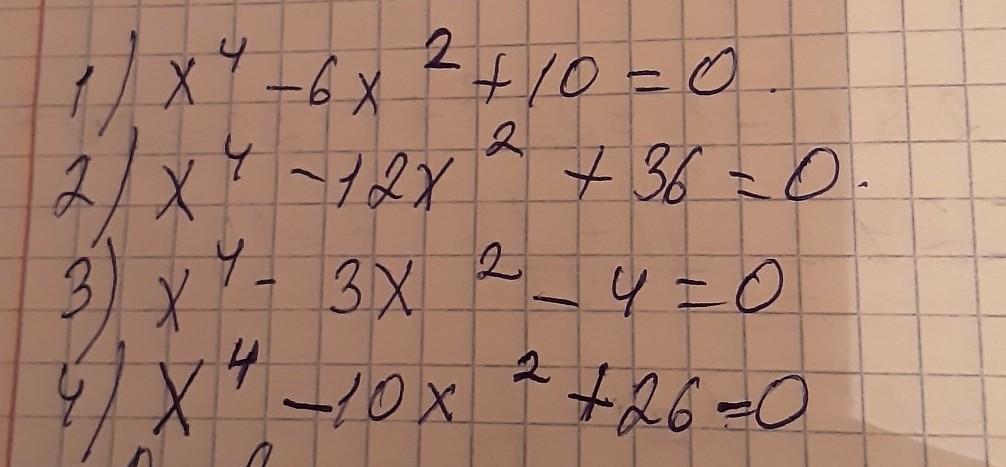 1) x⁴ - 6x² + 10 = 0.
2) x⁴ - 12x² + 36 = 0.
3) x⁴ - 3x² - 4 = 0
4) x⁴ - 10x² + 26 = 0